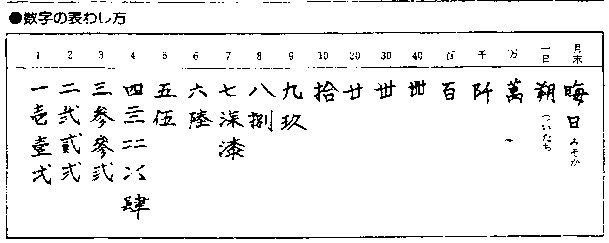 ●数字の表わし方
1 2 3 4 5 6 7 8 9 10 20 30 40 百 千 万 一日 月末
一 二 三 四 五 六 七 八 九 拾 廿 卅 卌 百 阡 萬 朔 晦日
壱 弐 参 亖 伍 陸 柒 捌 玖 ついたち みそか
壹 貳 參 漆
弌 弍 弎
肆